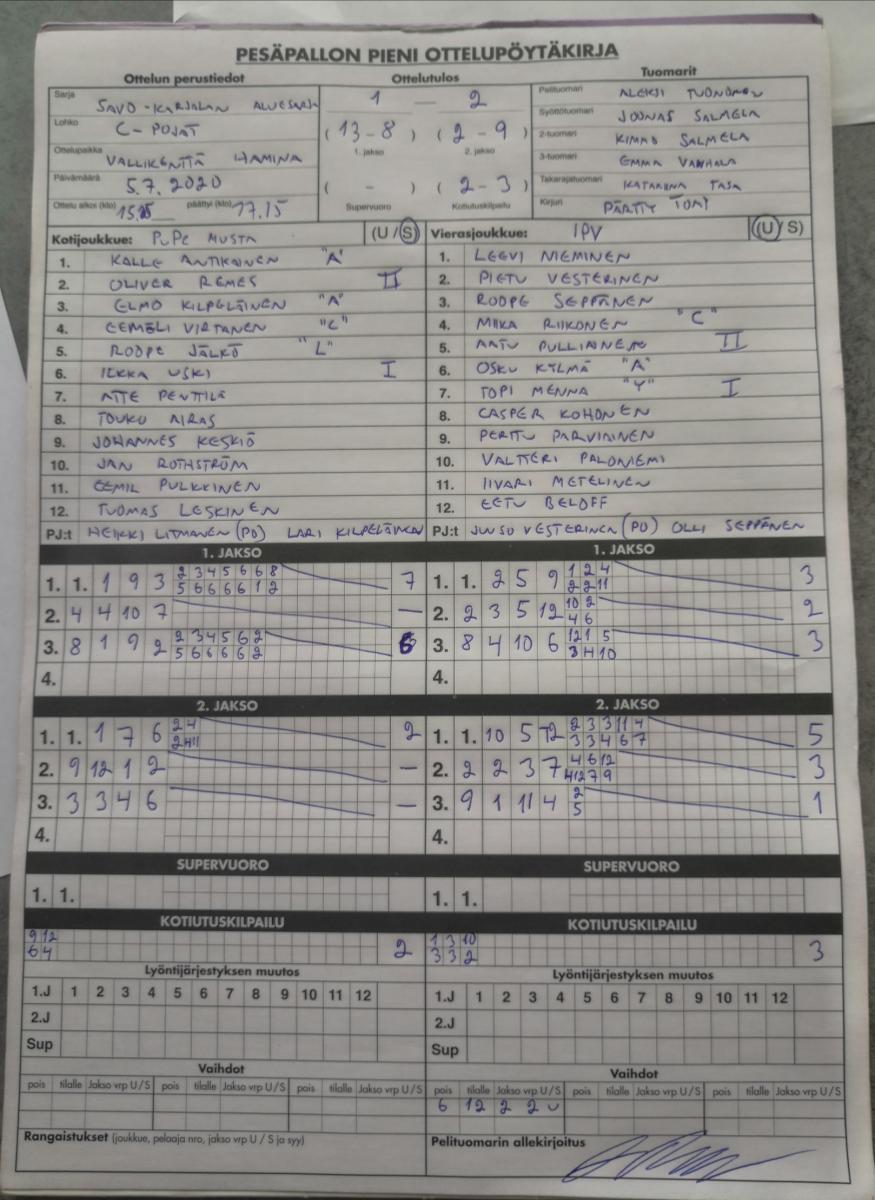 PESÄPALLON PIENI OTTELUPÖYTÄKIRJA
Ottelun perustiedot Ottelutulos Tuomarit
Sarja SAVO-KARJALAN ALUESARJA 1 - 2 Pelituomari ALEKSI TUONONEN
Lohko C-POJAT (13-8) (2-9) Syöttötuomari JOONAS SALMELA
1. jakso 2. jakso 2-tuomari KIMMO SALMELA
Ottelupaikka VALLIKENTTÄ HAMINA 3-tuomari EMMA VANHALA
Päivämäärä 5.7.2020 ( - ) (2-3) Takarajatuomari KATARIINA TASA
Ottelu alkoi (klo) 15.15 päättyi (klo) 17.15 Supervuoro Kotiutuskilpailu Kirjuri PÄRTTY TOMI
Kotijoukkue: PuPe MUSTA (U/S) Vierasjoukkue: IPV (U/S)
1. KALLE ANTIKAINEN "A" 1. LEEVI NIEMINEN
2. OLIVER REMES II 2. PIETU VESTERINEN
3. ELMO KILPELÄINEN "A" 3. ROOPE SEPPÄNEN
4. EEMELI VIRTANEN "C" 4. MIIKA RIIKONEN "C"
5. ROOPE JÄLKÖ "L" 5. AATU PULLIAINEN II
6. ILKKA USKI I 6. OSKU KYLMÄ "A"
7. ATTE PENTTILÄ 7. TOPI MENNA "Y" I
8. TOUKO AIRAS 8. CASPER KOHONEN
9. JOHANNES KESKIÖ 9. PERTTU PARVIAINEN
10. JAN ROTHSTRÖM 10. VALTTERI PALONIEMI
11. EEMIL PULKKINEN 11. IIVARI METELINEN
12. TUOMAS LESKINEN 12. EETU BELOFF
PJ:t HEIKKI LITMANEN (PO) LARI KILPELÄINEN PJ:t JUUSO VESTERINEN (PO) OLLI SEPPÄNEN
1. JAKSO 1. JAKSO
2 3 4 5 6 6 8 1 2 4
1. 1. 1 9 3 7 1. 1. 2 5 9 3
5 6 6 6 6 1 2 2 2 11
2. 4 4 10 7 — 10 2
2. 2 3 5 12 2
4 6
2 3 4 5 6 2 12 1 5
3. 8 1 9 2 6 3. 8 4 10 6 3
5 6 6 6 6 2 3 4 10
4. 4.
2. JAKSO 2. JAKSO
2 4 2 3 3 11 4
1. 1. 1 7 6 2 1. 1. 10 5 12 5
2 11 3 3 4 6 7
4 6 12
2. 9 12 1 2 — 2. 2 2 3 7 3
4 12 7 9
2
3. 3 3 4 6 — 3. 9 1 11 4 1
5
4. 4.
SUPERVUORO SUPERVUORO
1. 1. 1. 1.
KOTIUTUSKILPAILU KOTIUTUSKILPAILU
9 12 1 3 10
6 4 2 3 3 2 3
Lyöntijärjestyksen muutos Lyöntijärjestyksen muutos
1.J 1 2 3 4 5 6 7 8 9 10 11 12 1.J 1 2 3 4 5 6 7 8 9 10 11 12
2.J 2.J
Sup Sup
Vaihdot Vaihdot
pois tilalle Jakso vrp U/S pois tilalle Jakso vrp U/S pois tilalle Jakso vrp U/S pois tilalle Jakso vrp U/S pois tilalle Jakso vrp U/S pois tilalle Jakso vrp U/S
6 12 2 2 U
Rangaistukset (joukkue, pelaaja nro, jakso vrp U / S ja syy) Pelituomarin allekirjoitus